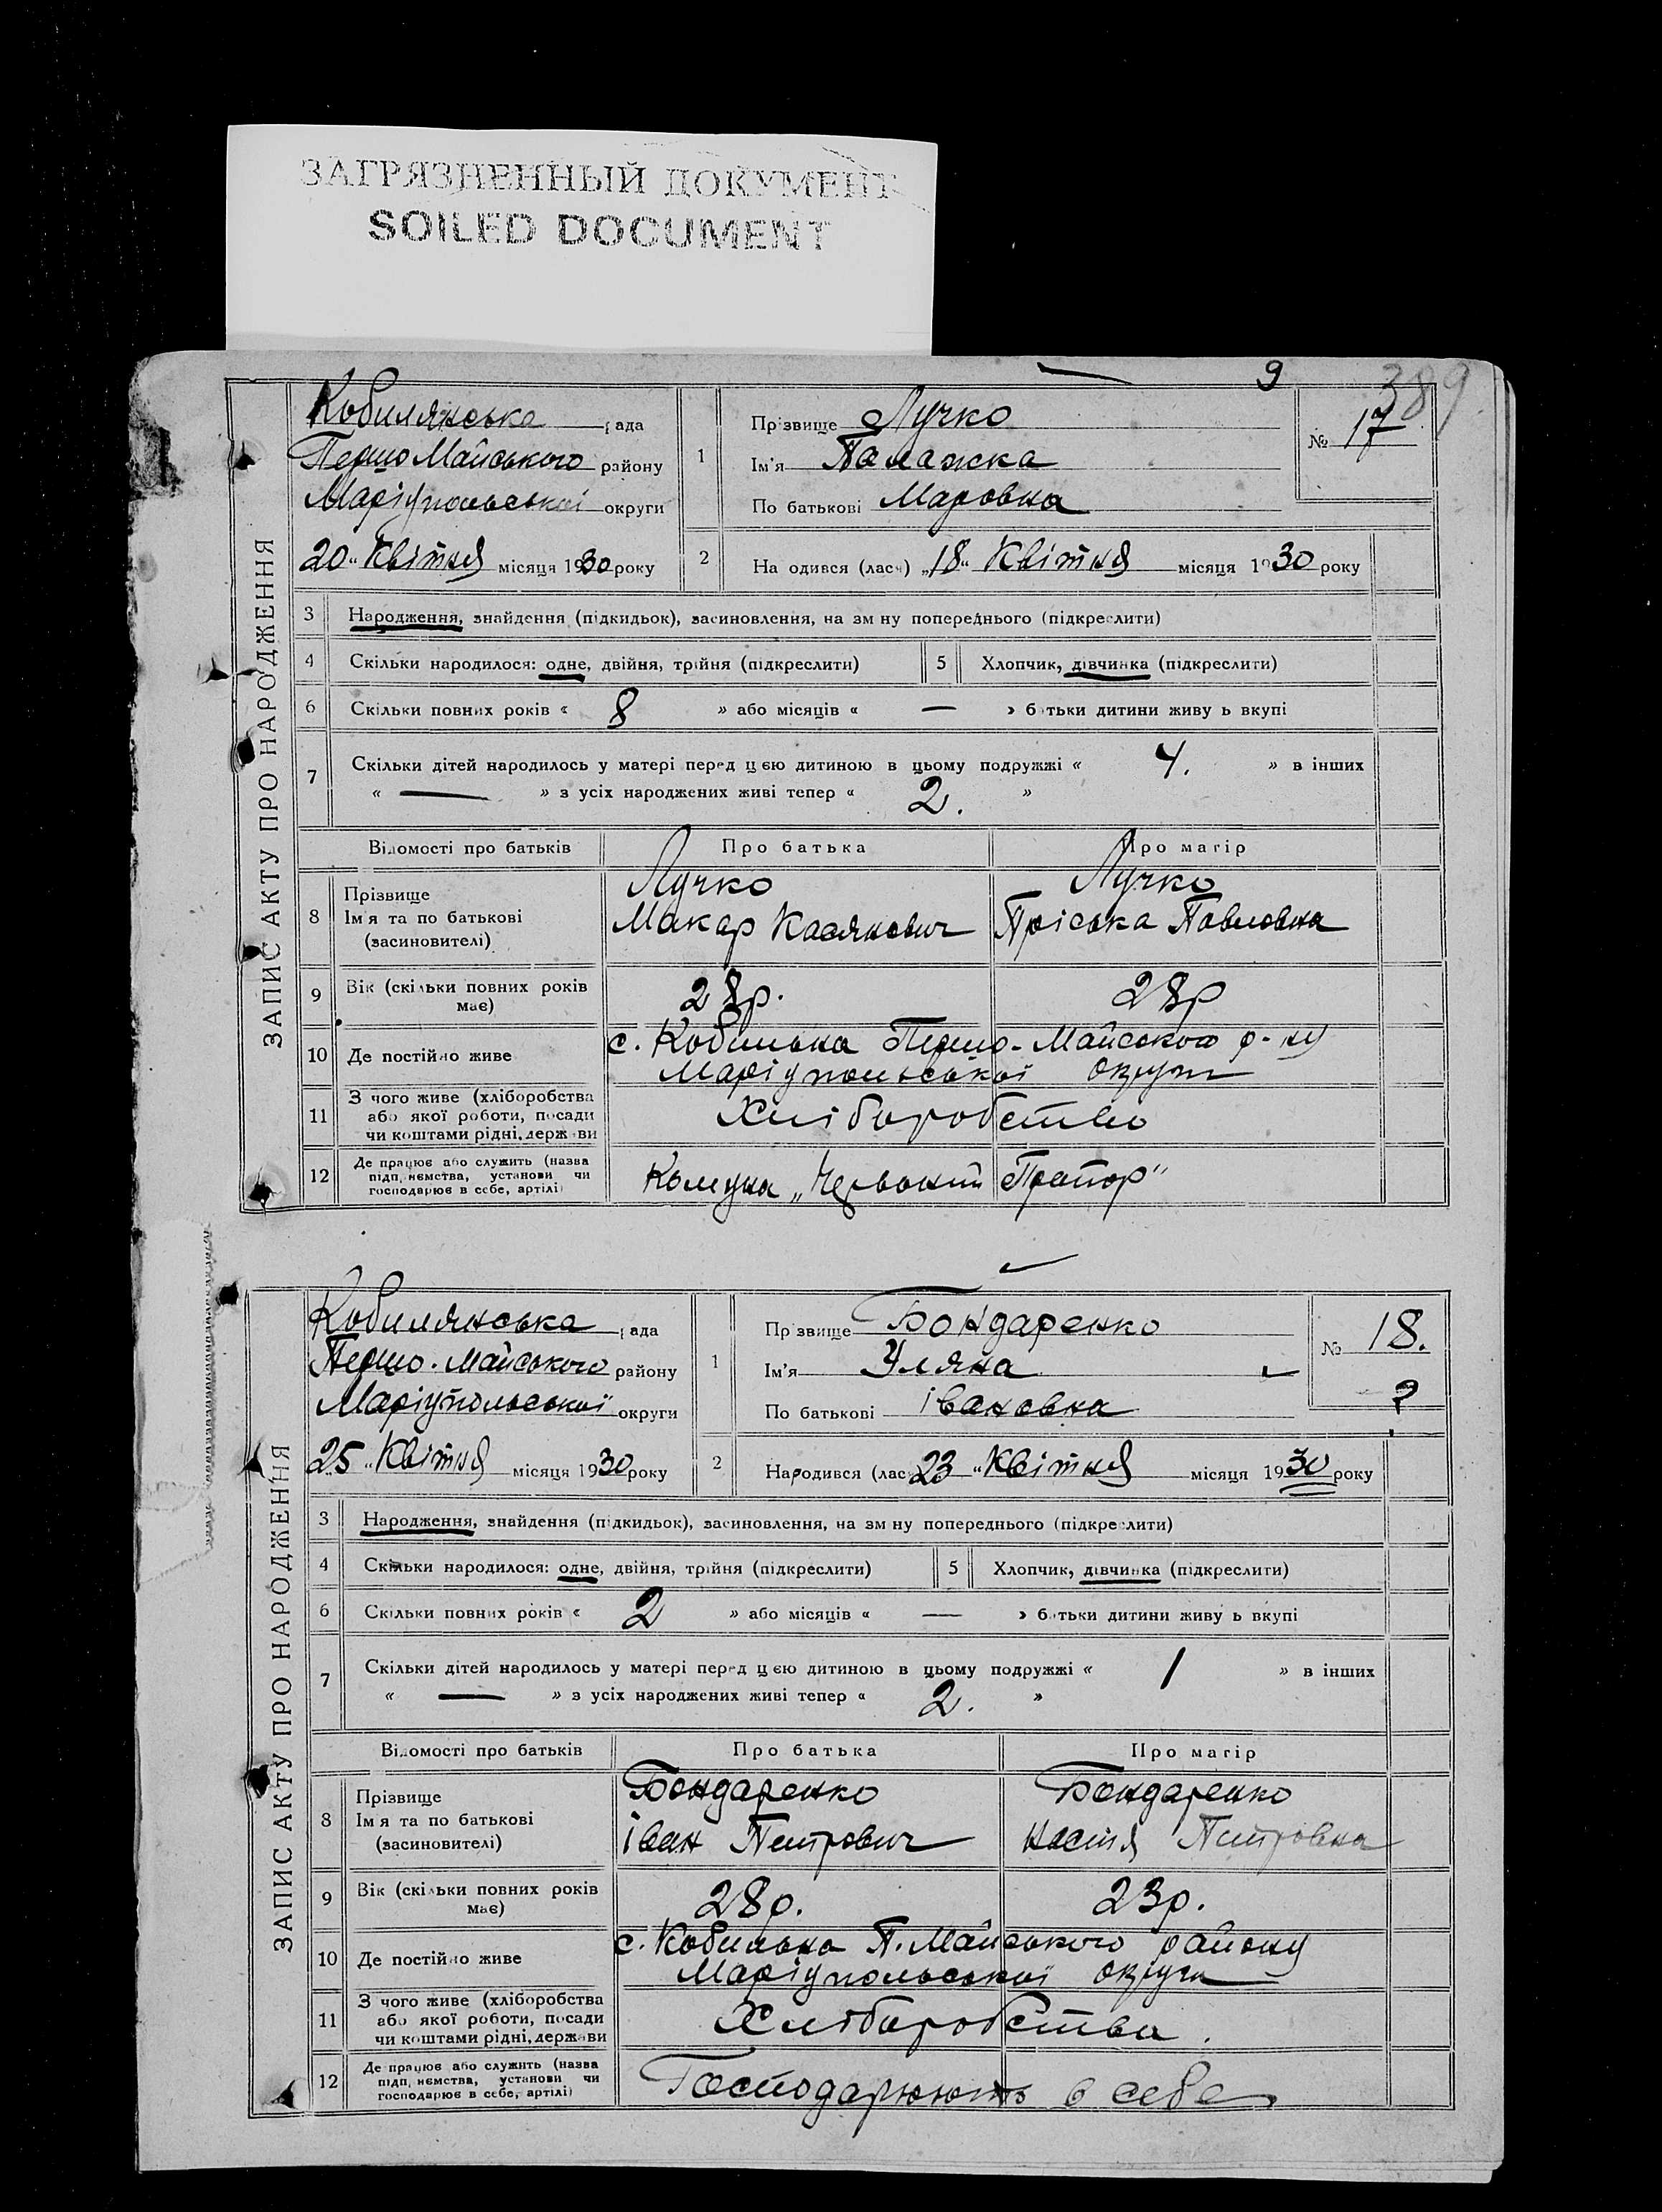 ЗАГРЯЗНЕННЫЙ ДОКУМЕНТ
SOILED DOCUMENT
9
389
ЗАПИС АКТУ ПРО НАРОДЖЕННЯ
Кобилянська рада
Першо Майського району
Маріупольської округи
20 " Квітня місяця 1930 року
1 Прізвище Лучко
Ім'я Палажка
По батькові Маровна
№ 17
2 На одився (лась) „18" Квітня місяця 1930 року
3 Народження, знайдення (підкидьок), засиновлення, на зм ну попереднього (підкреслити)
4 Скільки народилося: одне, двійня, трійня (підкреслити)
5 Хлопчик, дівчинка (підкреслити)
6 Скільки повних років « 8 » або місяців « — » батьки дитини живу ь вкупі
7 Скільки дітей народилось у матері перед цією дитиною в цьому подружжі « 4. » в інших
« — » з усіх народжених живі тепер « 2. »
Відомості про батьків Про батька Про матір
8 Прізвище Лучко Лучко
Ім'я та по батькові Макар Касянович Пріська Павловна
(засиновителі)
9 Вік (скільки повних років має) 28р. 28р
10 Де постійно живе с. Кобильна Першо-Майського р-ну
Маріупольської округи
11 З чого живе (хліборобства
або якої роботи, посади
чи коштами рідні, держави
Хліборобство
12 Де працює або служить (назва
підп, немства, установи чи
господарює в себе, артілі)
Комуна „Червоний Прапор"
ЗАПИС АКТУ ПРО НАРОДЖЕННЯ
Кобилянська рада
Першо-Майського району
Маріупольської округи
25 " Квітня місяця 1930 року
1 Прізвище Бондаренко
Ім'я Уляна
По батькові івановна
№ 18.
?
2 Народився (лас 23 " Квітня місяця 1930 року
3 Народження, знайдення (підкидьок), засиновлення, на зм ну попереднього (підкреслити)
4 Скільки народилося: одне, двійня, трійня (підкреслити)
5 Хлопчик, дівчинка (підкреслити)
6 Скільки повних років « 2 » або місяців « — » батьки дитини живу ь вкупі
7 Скільки дітей народилось у матері перед цією дитиною в цьому подружжі « 1 » в інших
« — » з усіх народжених живі тепер « 2. »
Відомості про батьків Про батька Про матір
8 Прізвище Бондаренко Бондаренко
Ім'я та по батькові іван Петрович Настя Петровна
(засиновителі)
9 Вік (скільки повних років має) 28р. 23р.
10 Де постійно живе с. Кобильна П.Майського району
Маріупольської округи
11 З чого живе (хліборобства
або якої роботи, посади
чи коштами рідні, держави
Хліборобства.
12 Де працює або служить (назва
підп, немства, установи чи
господарює в себе, артілі)
Господарюють в себе